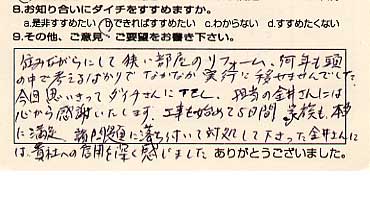 8.お知り合いにダイチをすすめますか。
a.是非すすめたい b.できればすすめたい c.わからない d.すすめたくない
9.その他、ご意見・ご要望をお書き下さい。
住みながらにして狭い部屋のリフォーム、何年も頭
の中で考えるばかりでなかなか実行に移せませんでした。
今回思いきってダイチさんに 、担当の金井さんには
心から感謝いたします。工事を始めて5日間 家族も、本当
に満足、諸問題に落ち付いて対処して下さった金井さんに
は、貴社への信用を深く感じました ありがとうございました。